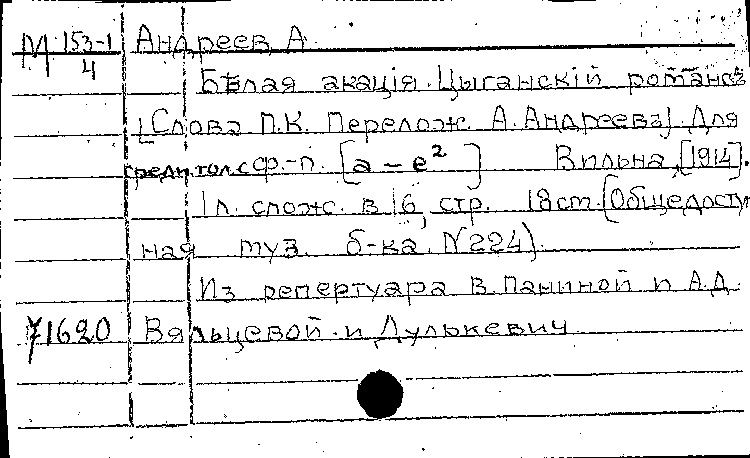 М 153-1 Андреев А.
4
Бѣлая акація. Цыганскій романсъ
[Слова П.К. Перелож. А. Андреева]. Для
средн. гол. с ф.-п. [a – e²] Вильна, [1914].
1 л. слож. в 16, стр. 18 cm. (Общедоступ
ная муз. б-ка. N 224).
Из репертуара В. Паниной и А.Д.
71620 Вяльцевой и Дулькевич